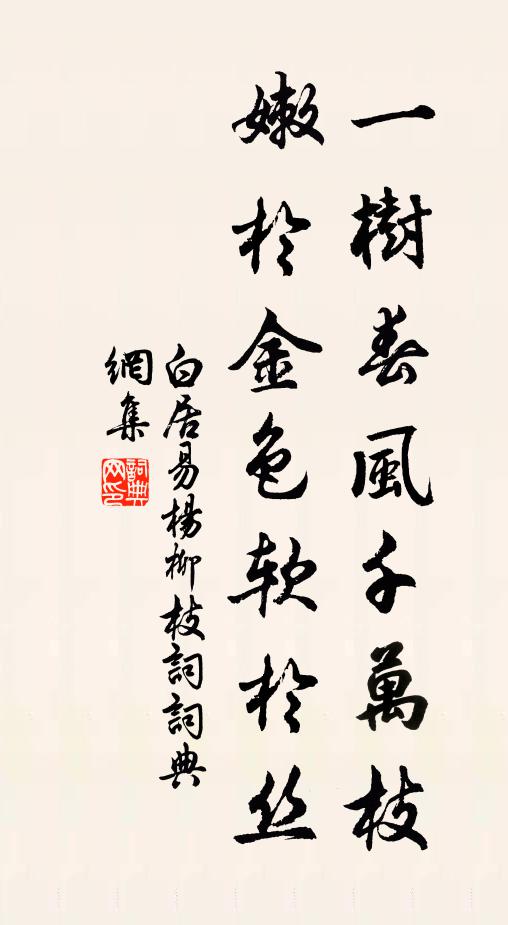 一樹春風千萬枝
嫩於金色軟於丝
白居易楊柳枝詞詞典
網集
詞典
网印